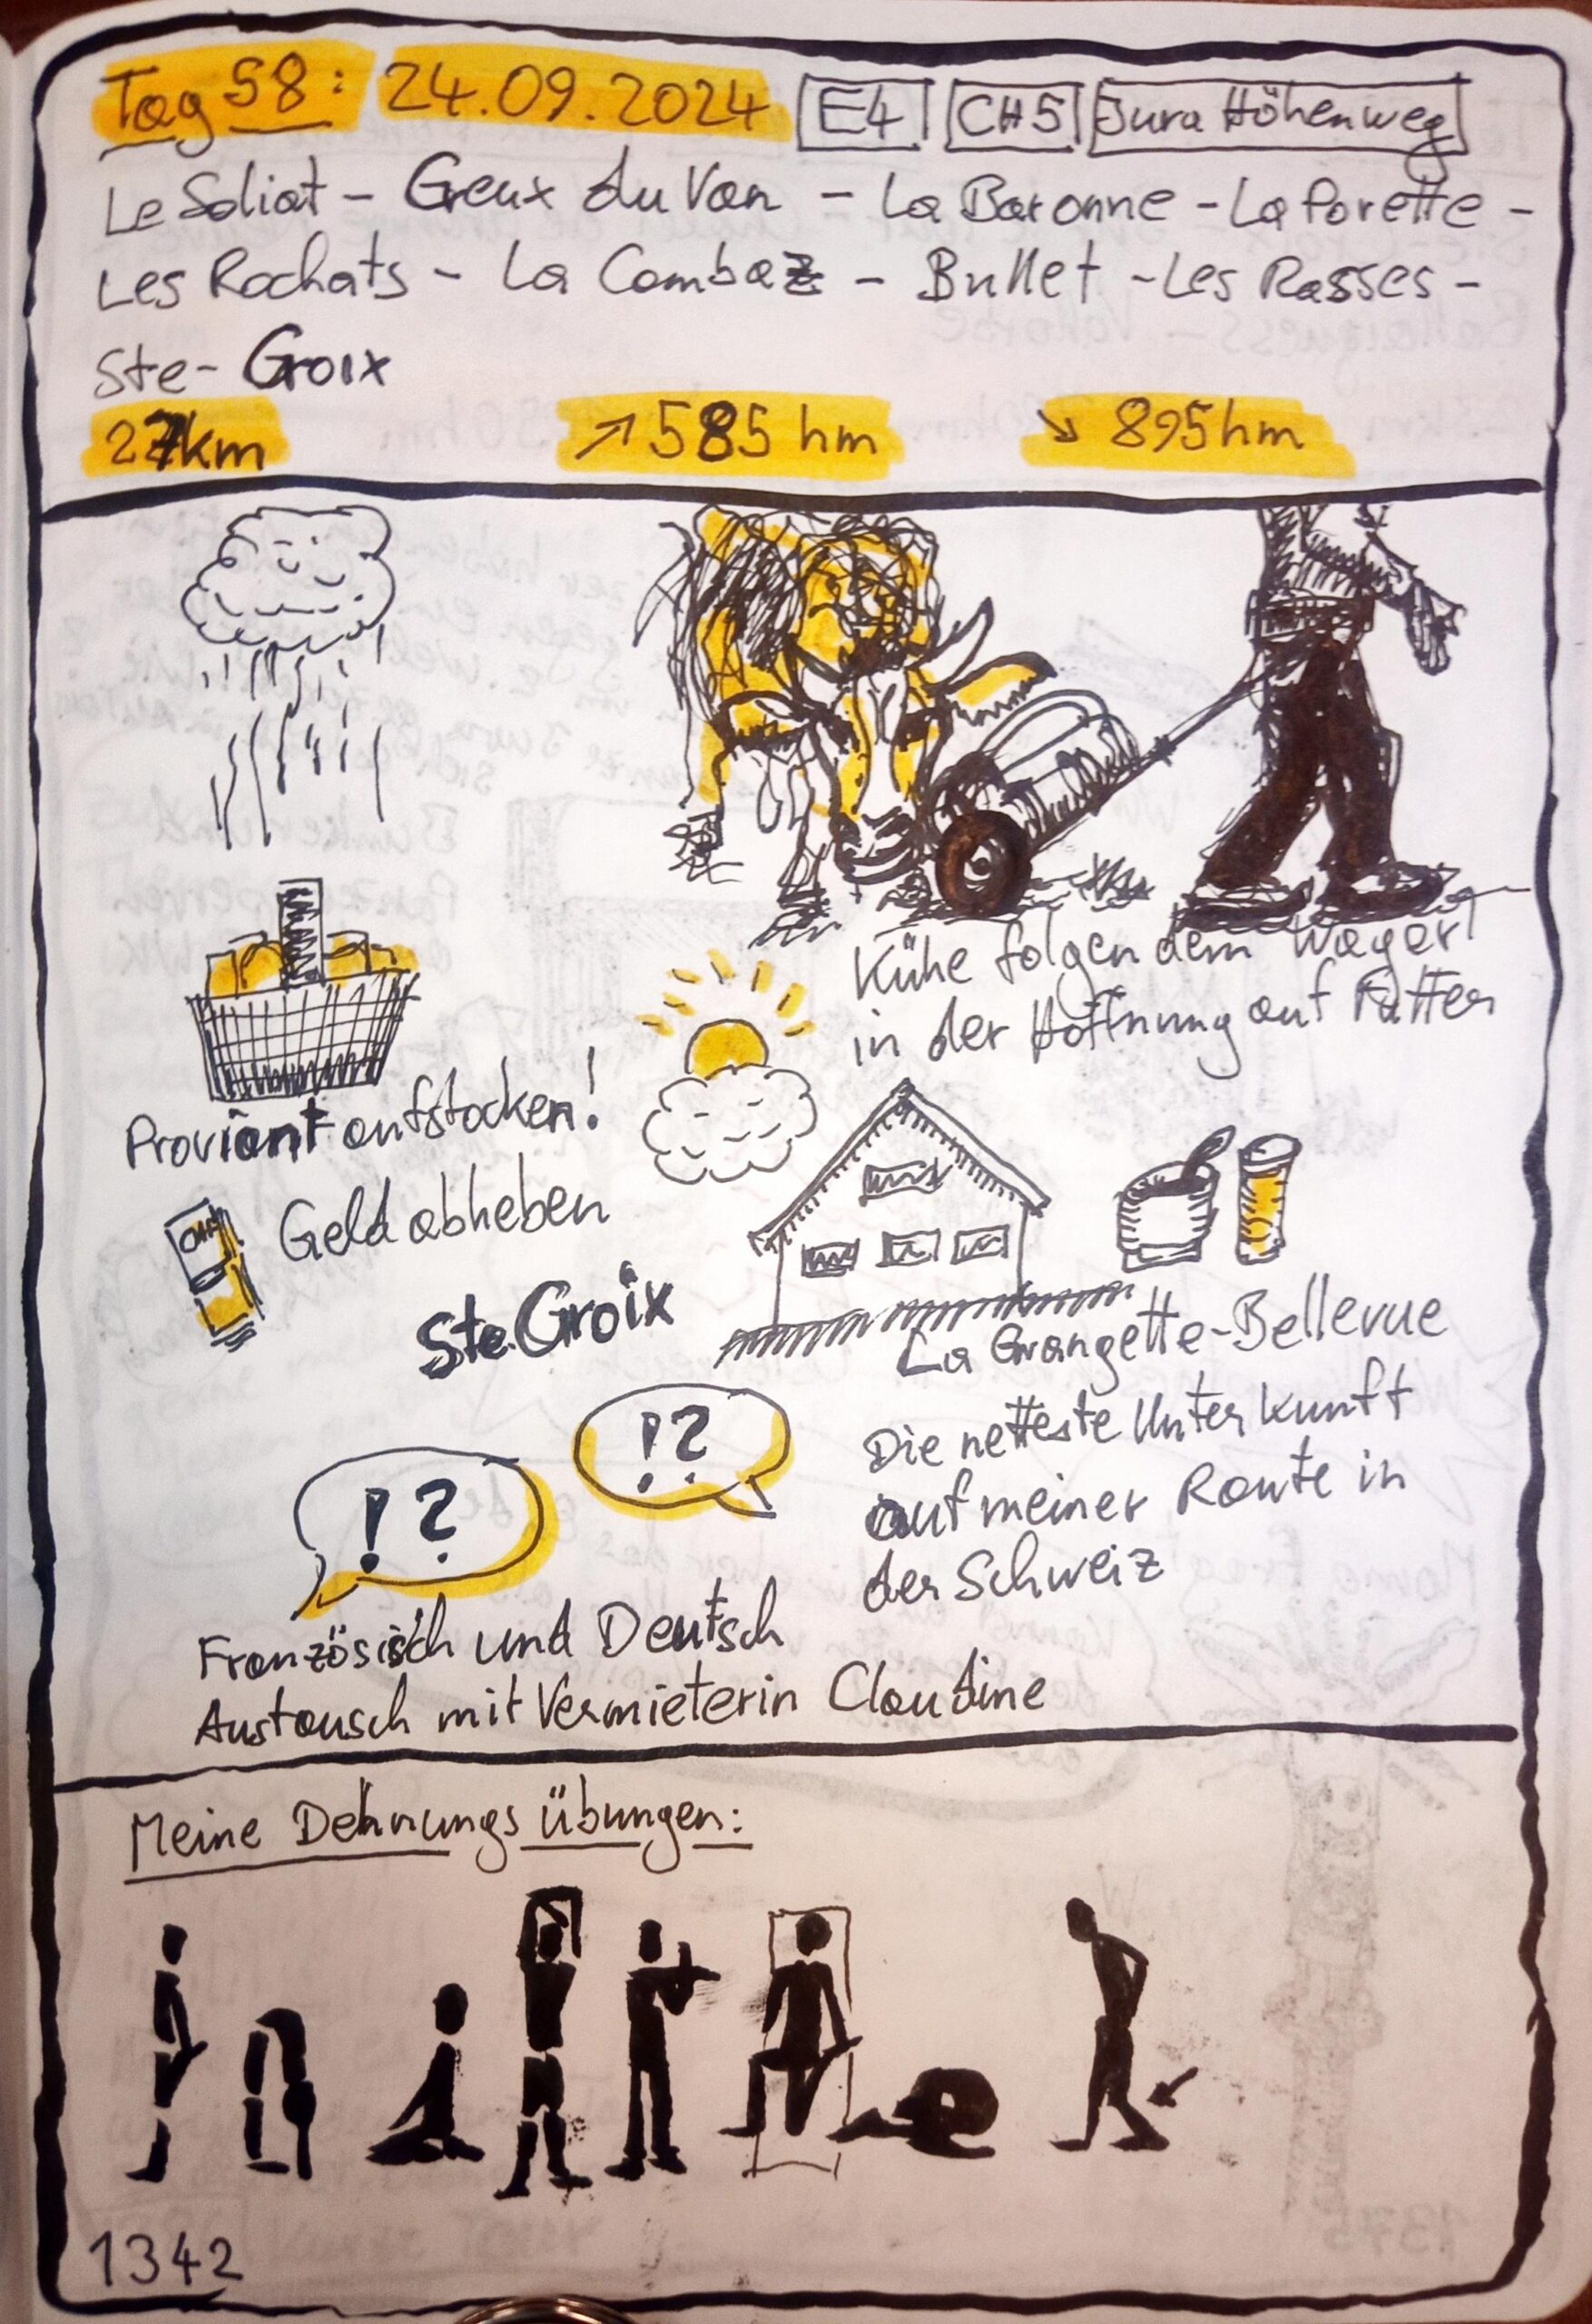 Tag 58: 24.09.2024 E4 CH5 Jura Höhenweg
Le Soliat - Creux du Van - La Baronne - La Porette -
Les Rochats - La Combaz - Bullet - Les Rasses -
Ste- Croix
27km ↗ 585 hm ↘ 895hm
Kühe folgen dem Wagerl
in der Hoffnung auf Futter
Proviant aufstocken!
Geld abheben
Ste. Croix
La Grangette-Bellevue
Die netteste Unterkunft
auf meiner Route in
der Schweiz
!?
!?
Französisch und Deutsch
Austausch mit Vermieterin Claudine
Meine Dehnungs übungen:
1342